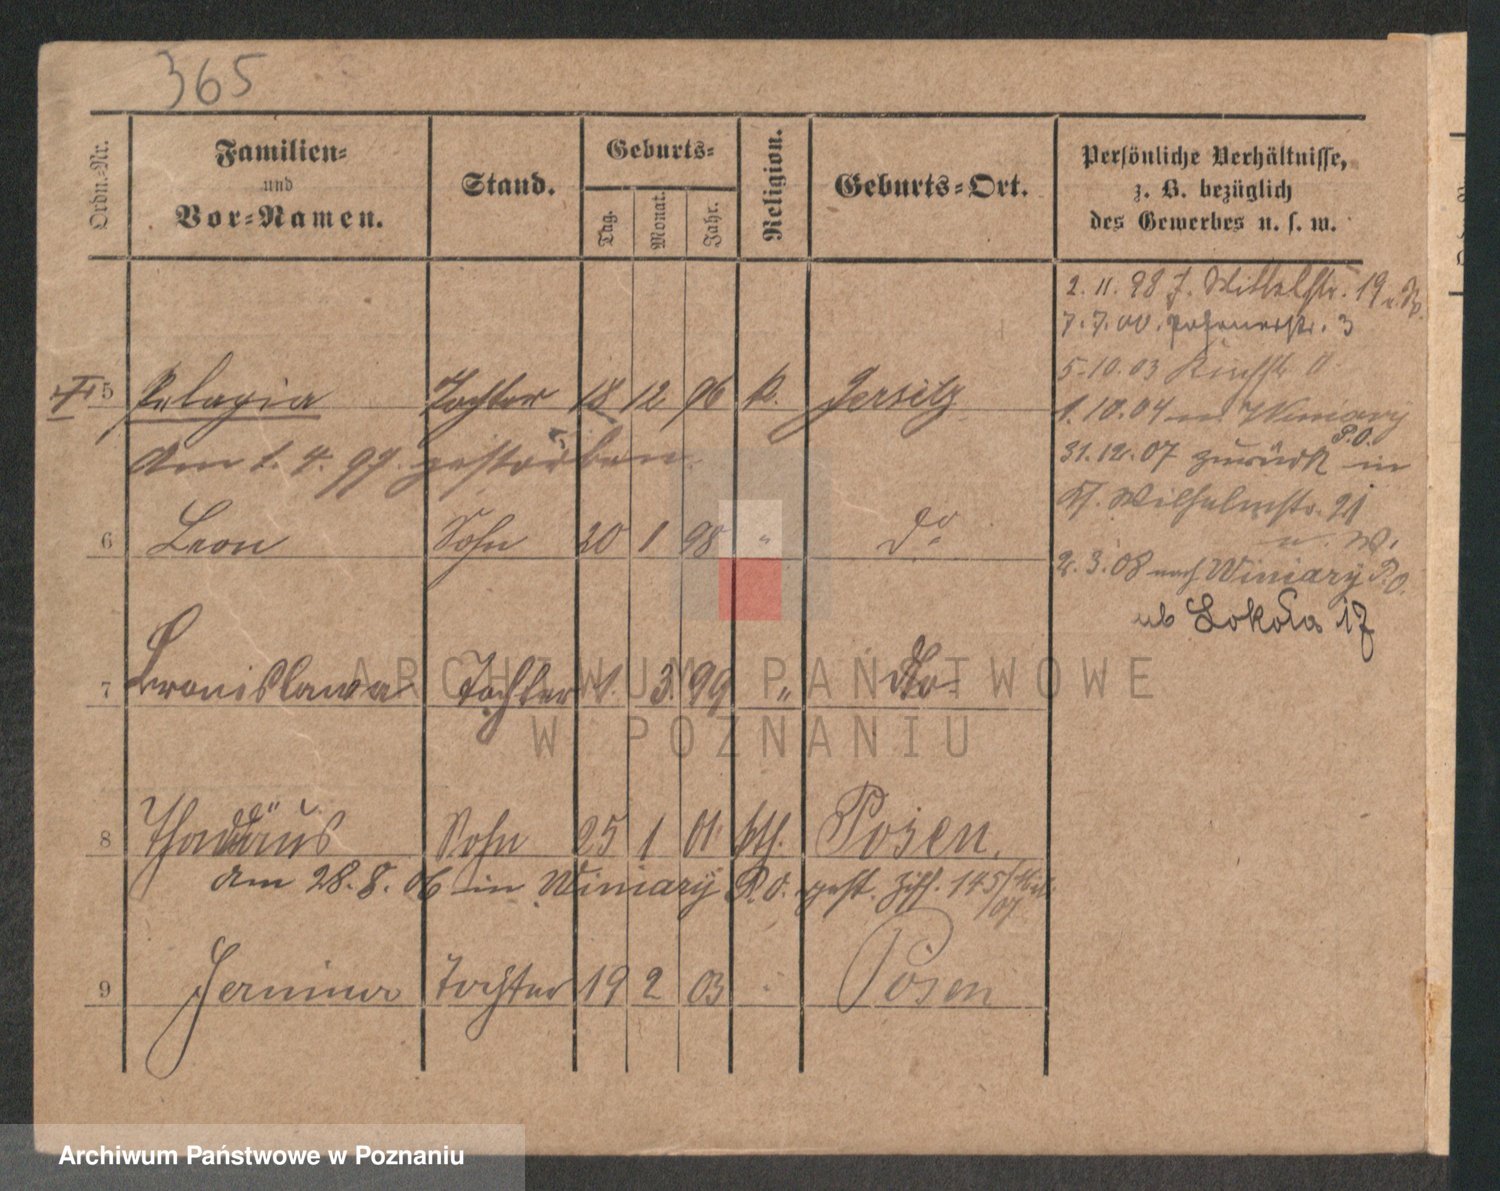 365
Ordn.-Nr.
Familien-
und
Vor-Namen.
Stand.
Geburts-
Tag.
Monat.
Jahr.
Religion.
Geburts-Ort.
Persönliche Verhältnisse,
z. B. bezüglich
des Gewerbes u. s. w.
2. 11. 98 J. 19
7. 7. 00. Posenerstr. 3
5. 10. 03
1. 10. 04 n. Winiary
P.O.
31. 12. 07 zurück in
Wilhelmstr. 21
u. W.
2. 3. 08 nach Winiary P.O.
ub Sokoła 17
5 Pelagia Tochter 18 12 96 k. Jersitz
Am 1. 4. 97. gestorben
6 Leon Sohn 20 1 98 " do
7 Bronislawa Tochter 1. 3. 99 " do
8 Thaddäus Sohn 25 1 01 kth. Posen.
Am 28. 8. 06 in Winiary P.O. gest. 145/
07
9 Tochter 19 2 03 Posen
ARCHIWUM PAŃSTWOWE
W POZNANIU
Archiwum Państwowe w Poznaniu